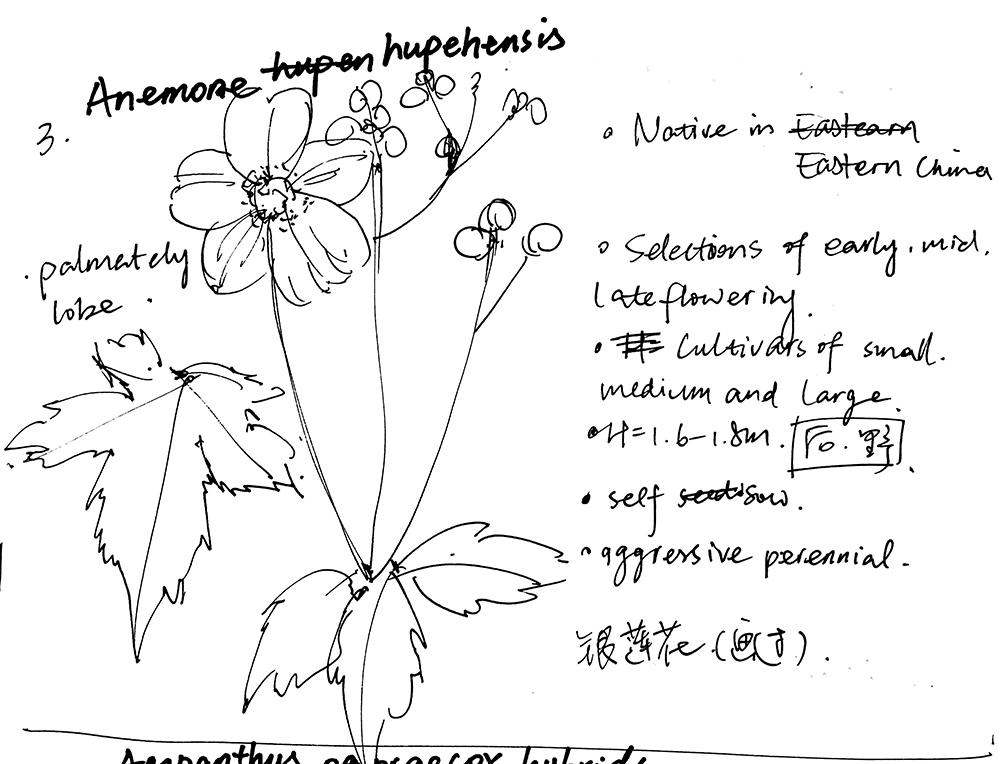 Anemone hupen hupehensis
3.
• Native in Eastearn
Eastern China
• Selections of early. mid.
late flowering.
• Cultivars of small.
medium and large.
• H=1.6-1.8m. 后.野.
• self seed sow.
• aggressive perennial.
银莲花.(画过).
• palmately
lobe.
praecox hybrids